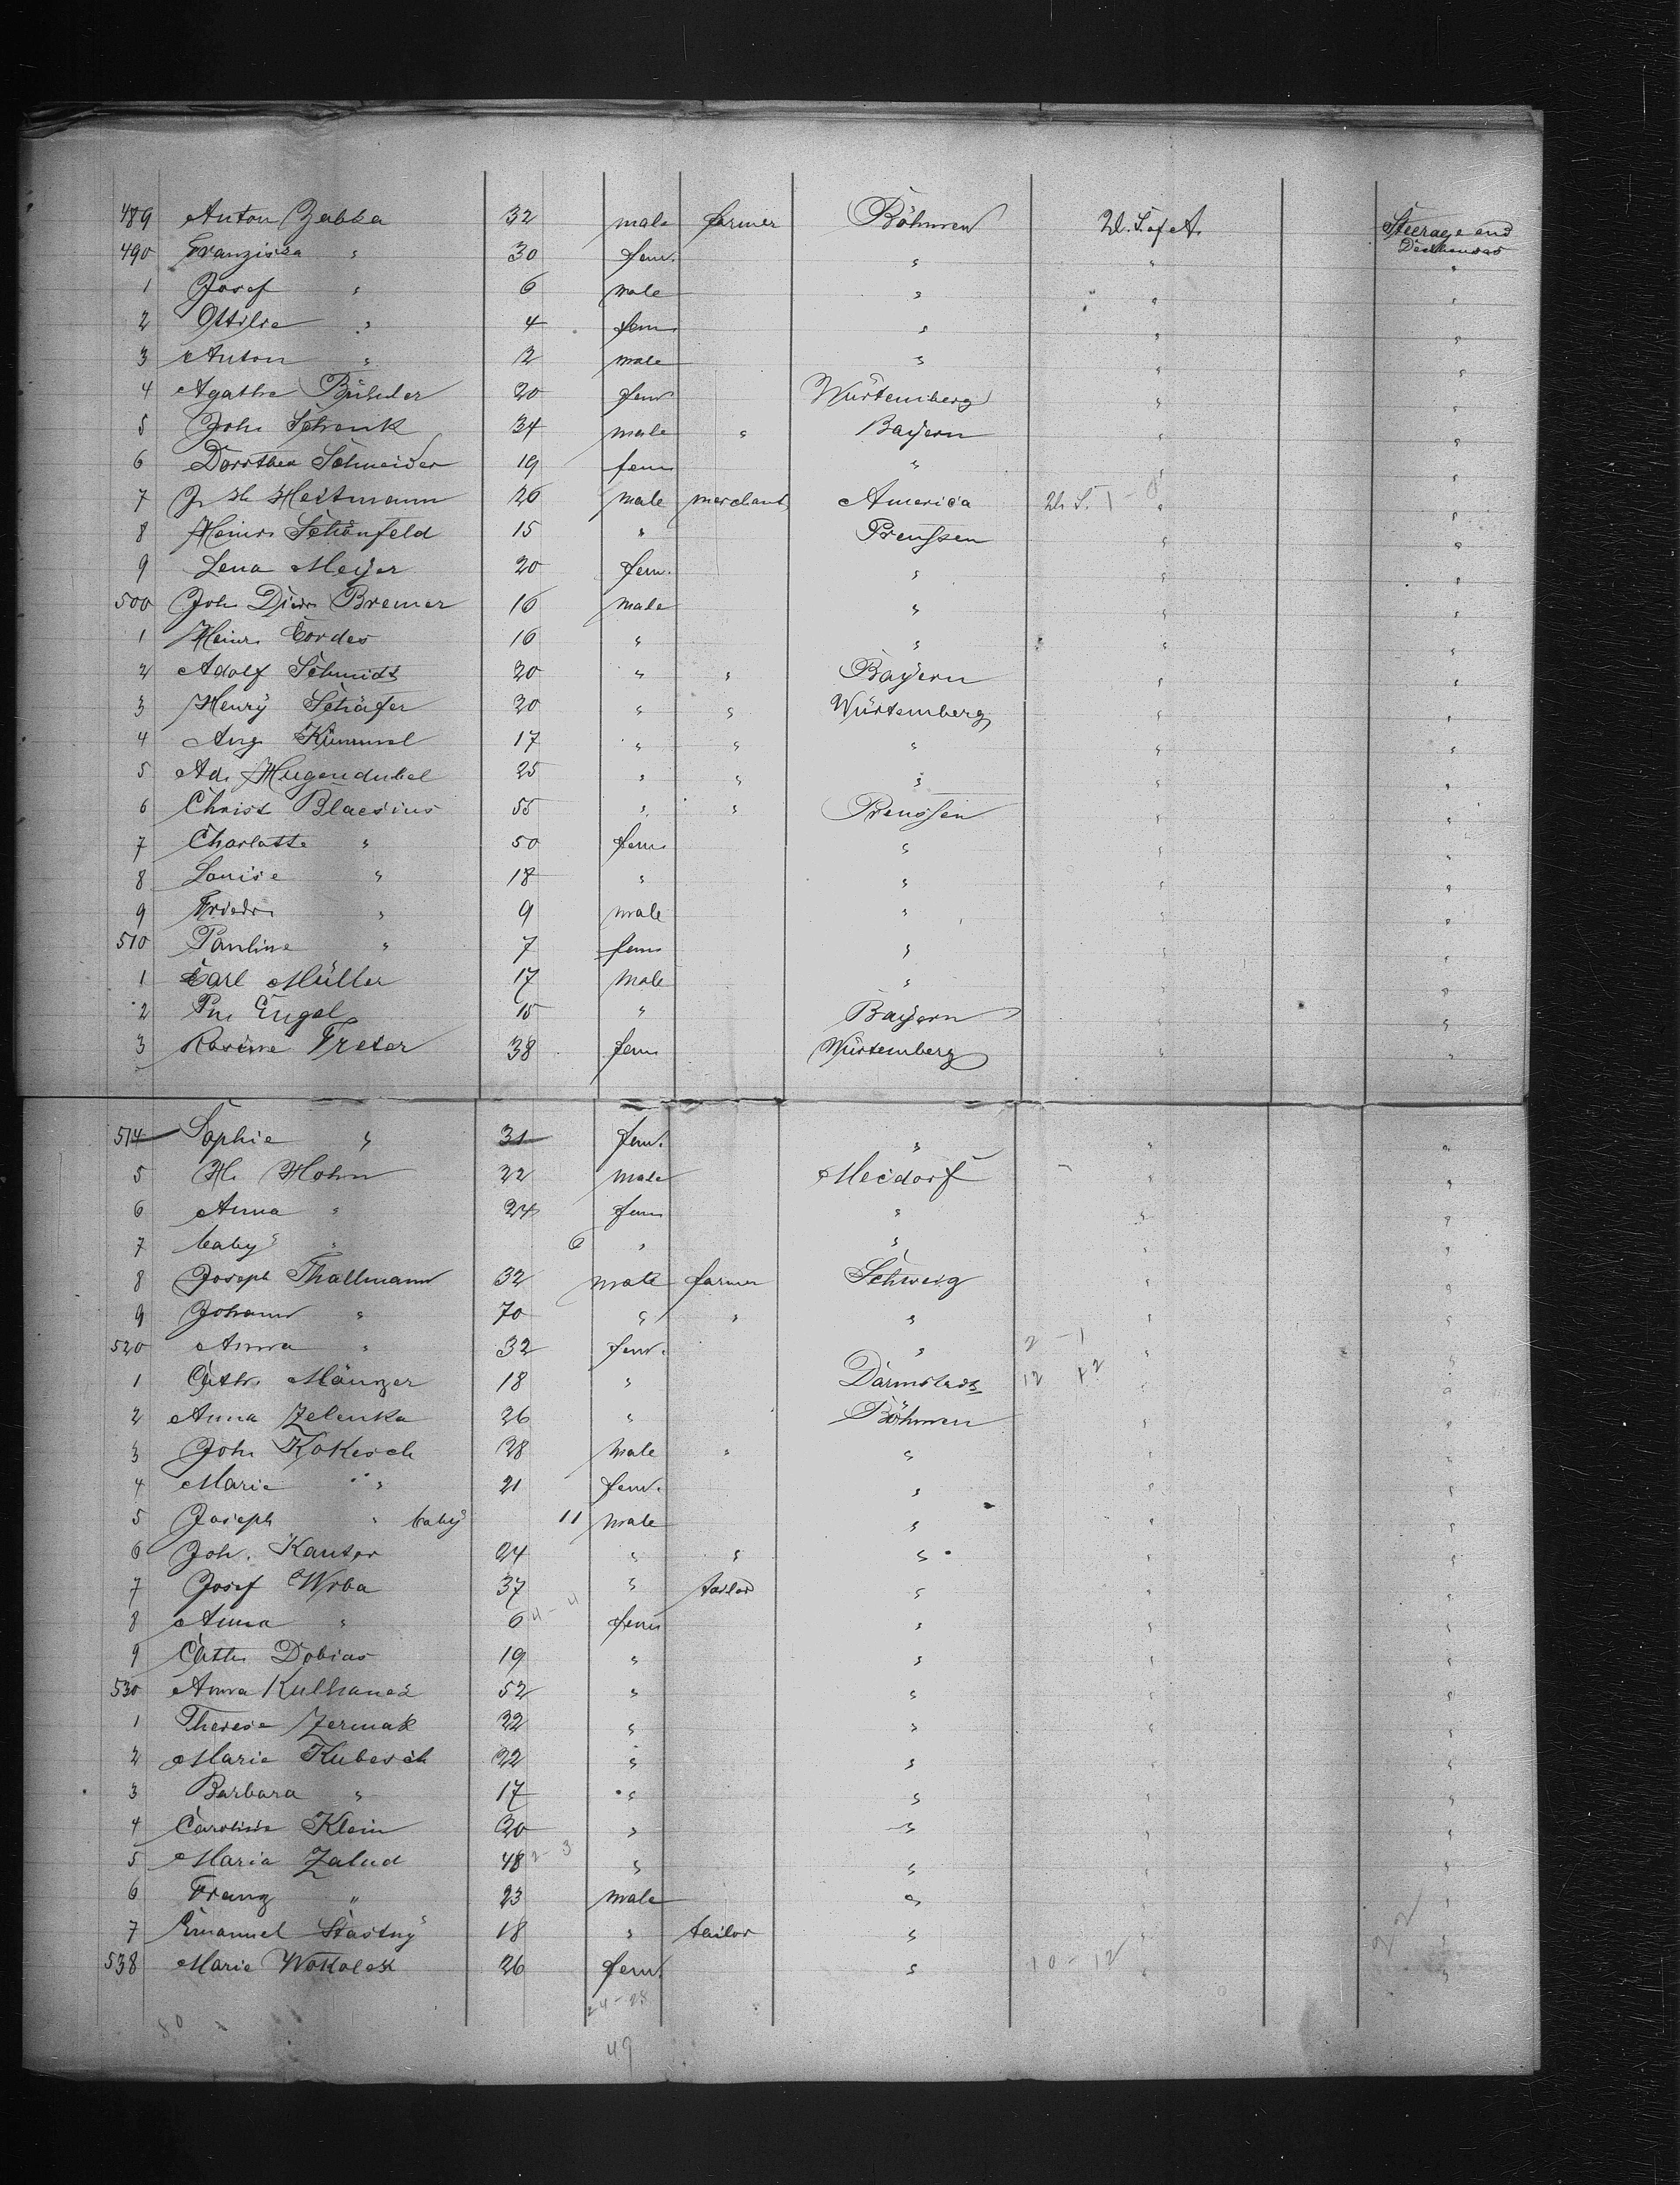 489 Anton Zabka 32 male farmer Böhmen U. S. of A. Steerage and Deckhouse
490 Franziska " 30 fem. " " "
1 Josef " 6 male " " "
2 Ottilie " 4 fem " " "
3 Anton " 2 male " " "
4 Agathe 20 fem Würtemberg " "
5 Joh. Schenk 34 male " Bayern " "
6 Dorothea Schneider 19 fem " " "
7 J. H. Heitmann 26 male merchant America U. S. " "
8 Heinr. Schönfeld 15 " Preußen " "
9 Lena Meyer 20 fem. " " "
500 Joh. Diedr. Bremer 16 male " " "
1 Heinr. Cordes 16 " " " "
2 Adolf Schmidt 20 " " Bayern " "
3 Henry Schäfer 20 " " Würtemberg " "
4 Aug. Kümmel 17 " " " " "
5 Ad. Hugendubel 25 " " " " "
6 Christ Blaesius 55 " " Preussen " "
7 Charlotte " 50 fem. " " "
8 Louise " 18 " " " "
9 Friedr. " 9 male " " "
510 Pauline " 7 fem " " "
1 Carl Müller 17 male " " "
2 Engel 15 " Bayern " "
3 Rosine Treter 38 fem Würtemberg " "
514 Sophie " 31 fem. " " "
5 H. Hohn 22 male Meidorf " "
6 Anna " 24 fem " " "
7 baby " 6 " " " "
8 Joseph Thallmann 32 male farmer Schweiz " "
9 Johann " 70 " " " " "
520 Anna " 32 fem. " 2 - 1 " "
1 Cath. Mänzer 18 " Darmstadt 12 12 " "
2 Anna Zelenka 26 " Böhmen " "
3 Joh. Kokesch 28 male " " " "
4 Marie " 21 fem. " " "
5 Joseph " baby 11 male " " "
6 Joh. Kanter 24 " " " " "
7 Josef Wrba 37 " tailor " " "
8 Anna " 6 4 - 4 fem " " "
9 Cath. Dobias 19 " " " "
530 Anna Kulhanek 52 " " " "
1 Therese Zermak 22 " " " "
2 Marie Kubesch 22 " " " "
3 Barbara " 17 " " " "
4 Caroline Klein 20 " " " "
5 Maria Zalud 48 2 - 3 " " " "
6 Franz " 23 male " " "
7 Emanuel Stastny 18 " tailor " " "
538 Marie Wokalek 26 fem. " 10 - 12 " "
24 - 25
50
49
22